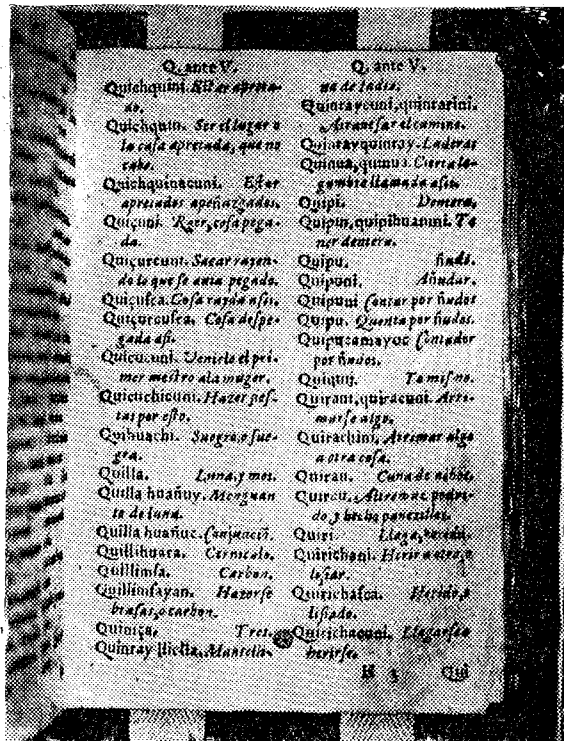 Q. ante V.
Quichquini. Estar apreta-
do.
Quichquin. Ser el lugar o
la cosa apretada, que no
cabe.
Quichquinacuni. Estar
apretados apeñuzgados.
Quiçuni. Raer, cosa pega-
da.
Quiçurcuni. Sacar rayen-
do lo que se auia pegado.
Quiçusca. Cosa rayda assi.
Quiçurcusca. Cosa despe-
gada assi.
Quicucuni. Uenirle el pri-
mer mestro ala muger.
Quicuchicuni. Hazer fies-
tas por esto.
Quihuachi. Suegra, o sue-
gra.
Quilla. Luna, y mes.
Quilla huañuy. Menguan
te de luna.
Quilla huañuc. Conjunciõ.
Quillihuara. Cernicalo.
Quillimsa. Carbon.
Quillimsayan. Hazerse
brasas, o carbon.
Quimiça. Tres.
Quinray lliclla. Mantelli-
Q. ante V.
na de lados.
Quinraycuni, quinrarini.
Atrauesar el camino.
Quinrayquinray. Laderas
Quinua, quinua. Cierta le-
gumbre llamada assi.
Quipi. Dentera.
Quipin, quipihuanmi. Te
ner dentera.
Quipu. ñudo.
Quipuni. Añudar.
Quipuni Contar por ñudos
Quipu. Quenta por ñudos.
Quipucamayoc Contador
por ñudos.
Quiquij. Lo mismo.
Quirani, quiracuni. Arri-
marse algo.
Quirachini. Arrimar algo
a otra cosa.
Quirau. Cuna de niños.
Quircu. Altramuz podri-
do, y hecho panezillas.
Quiri. Llaga,
Quirichani. Herir a otro, o
lisiar.
Quirichasca. Herido, o
lisiado.
Quirichacuni. Llagarse o
herirse.
H 3 Qui